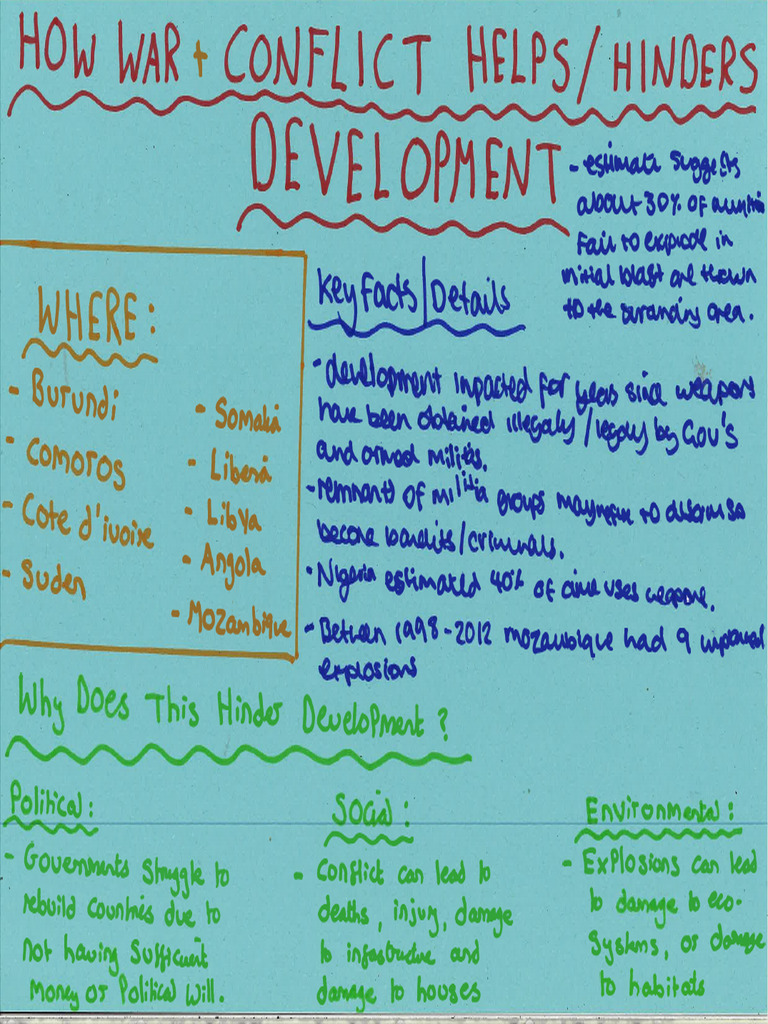 HOW WAR + CONFLICT HELPS/HINDERS
DEVELOPMENT
- estimate suggests
about 30% of
Fail to explode in
initial blast are thrown
to the area.
WHERE:
- Burundi
- Comoros
- Cote d'ivoire
- Suden
- Somalia
- Liberia
- Libya
- Angola
- Mozambique
Key Facts/Details
- development impacted for years since weapons
have been obtained illegaly/legaly by Gov's
and armed militias.
- remnants of militia groups to
become bandits/criminals.
- Nigeria estimated 40% of crime uses weapons.
- Between 1998-2012 mozambique had 9
explosions
Why Does This Hinder Development?
Political:
- Governments struggle to
rebuild countries due to
not having Sufficient
Money or Political Will.
Social:
- Conflict can lead to
deaths, injury, damage
to and
damage to houses
Environmental:
- Explosions can lead
to damage to eco-
Systems, or damage
to habitats